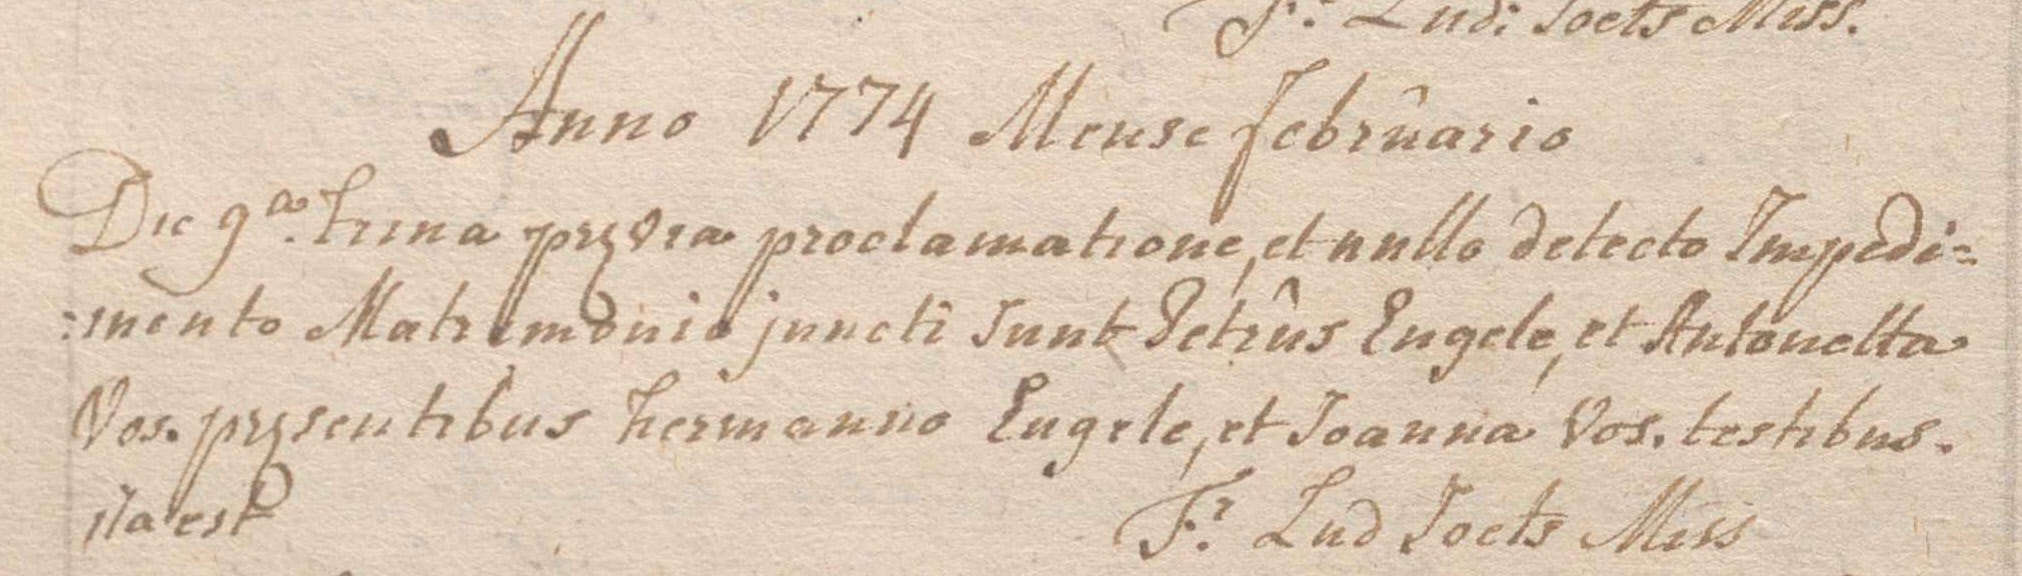 Fr. Lud: Soets Miss.
Anno 1774 Mense februario
Die 9a. trina pręvia proclamatione, et nullo detecto Impedi=
:mento Matrimonio juncti sunt Petrus Engele, et Antonetta
Vos. pręsentibus hermanno Engele, et Joanna Vos. testibus.
ita est
Fr. Lud Soets Miss